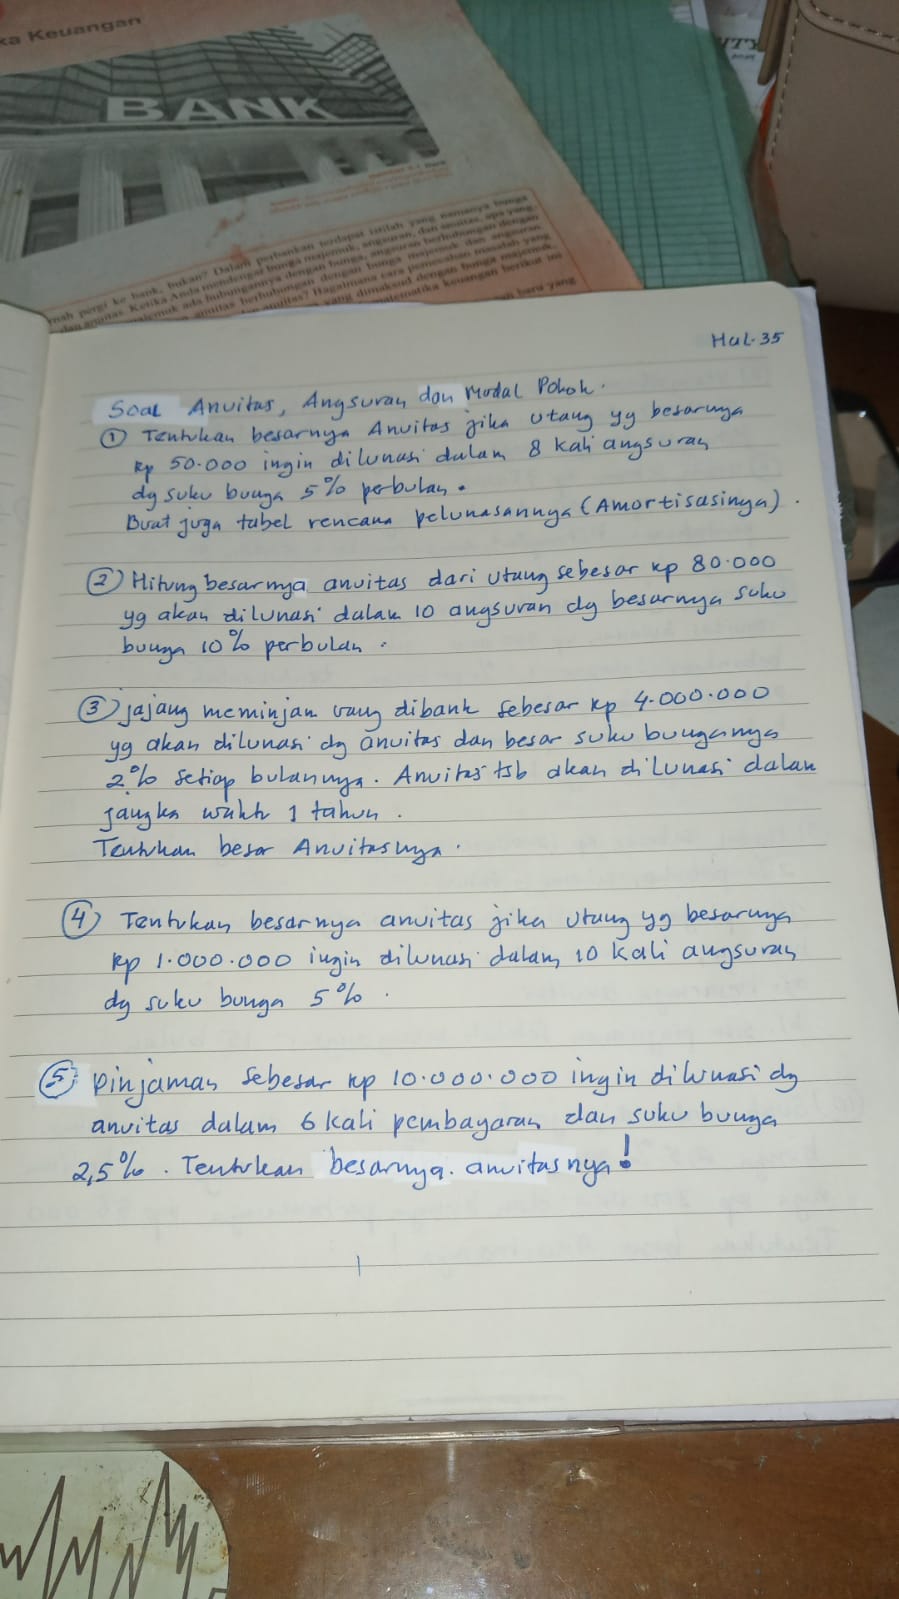 ka Keuangan
BANK
Hal. 35
Soal Anuitas, Angsuran dan Modal Pokok.
① Tentukan besarnya Anuitas jika utang yg besarnya
Rp 50.000 ingin dilunasi dalam 8 kali angsuran
dg suku bunga 5% perbulan.
Buat juga tabel rencana pelunasannya (Amortisasinya).
② Hitung besarnya anuitas dari utang sebesar Rp 80.000
yg akan dilunasi dalam 10 angsuran dg besarnya suku
bunga 10% perbulan.
③ Jajang meminjam uang dibank sebesar Rp 4.000.000
yg akan dilunasi dg anuitas dan besar suku bunganya
2% setiap bulannya. Anuitas tsb akan dilunasi dalam
jangka waktu 1 tahun.
Tentukan besar Anuitasnya.
④ Tentukan besarnya anuitas jika utang yg besarnya
Rp 1.000.000 ingin dilunasi dalam 10 kali angsuran
dg suku bunga 5%.
⑤ Pinjaman sebesar Rp 10.000.000 ingin dilunasi dg
anuitas dalam 6 kali pembayaran dan suku bunga
2,5%. Tentukan besarnya. anuitasnya!